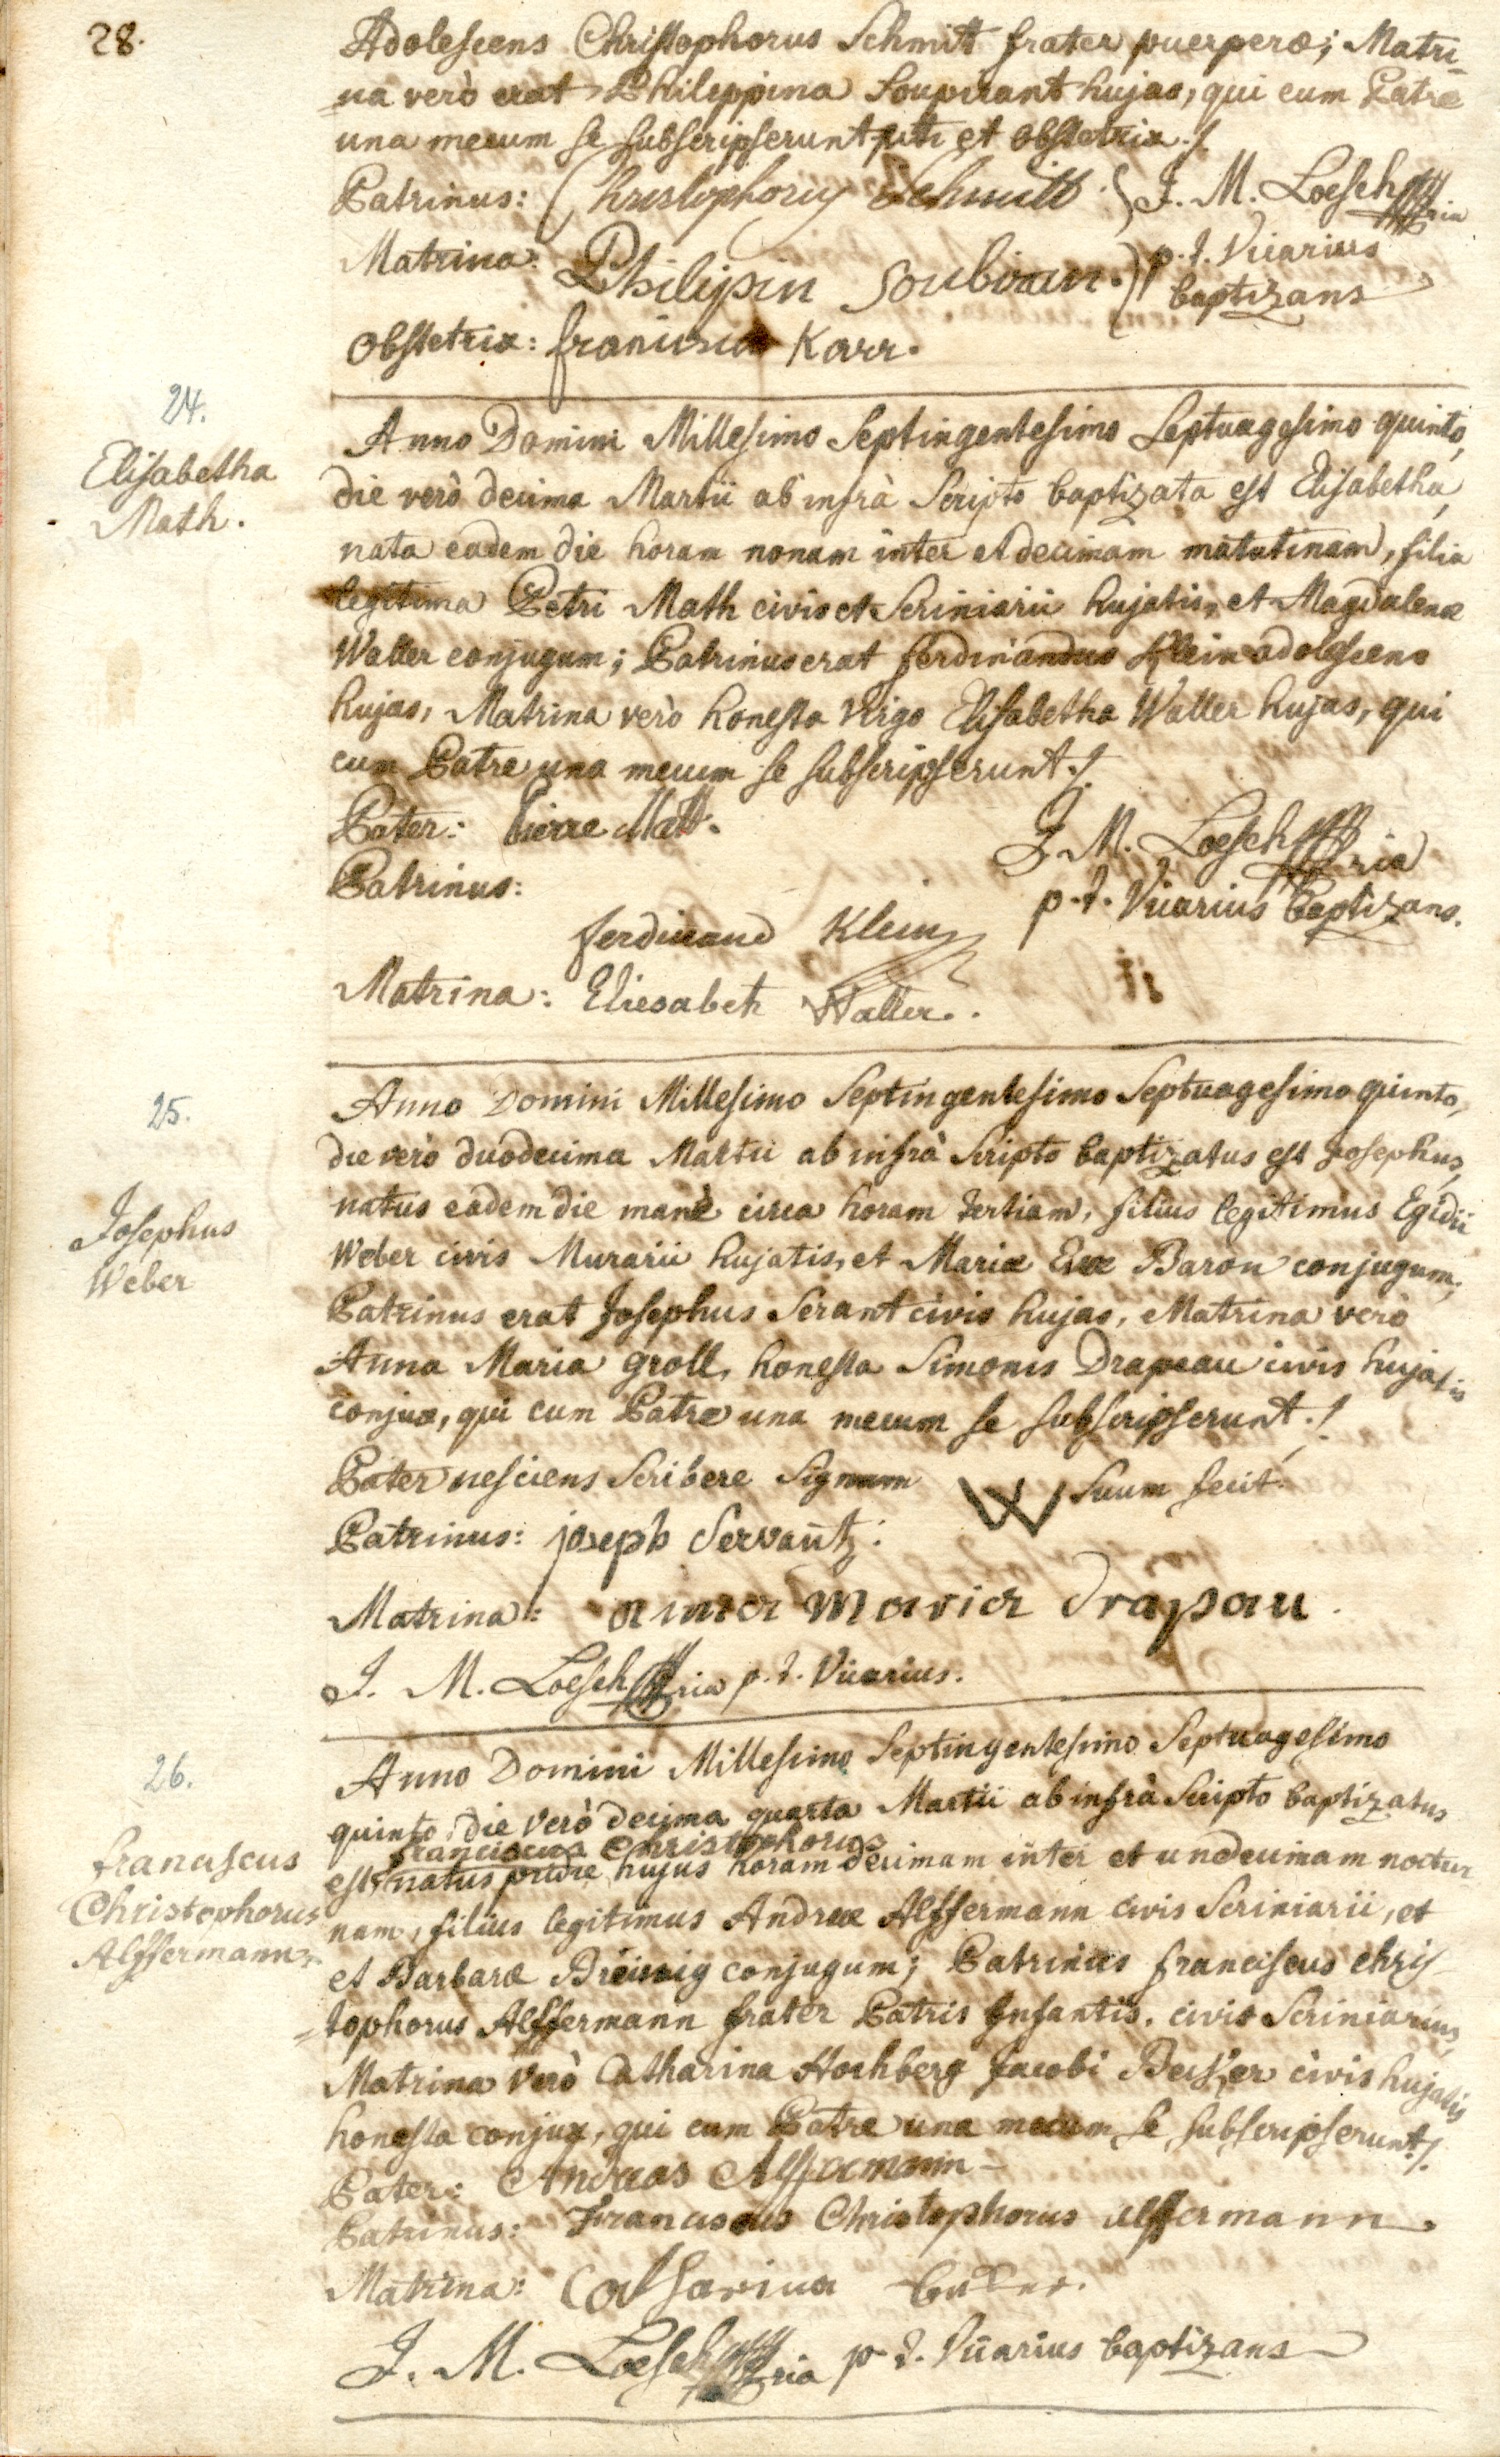 28.
Adolescens Christophorus Schmitt frater puerperæ; Matri-
=na verò erat Philippina Soupirant hujas, qui cum Patre
una mecum se subscripserunt uti et obstetrix ./.
Patrinus: Christophorus Schmitt. J. M. Loesch
Matrina: Philipin Soubiran. p. t. Vicarius
baptizans
Obstetrix: francisca Karr.
24.
Elisabetha
Math.
Anno Domini Millesimo Septingentesimo Septuagesimo quinto,
die verò decima Martii ab infrà Scripto baptizata est Elisabetha,
nata eadem die horam nonam inter et decimam matutinam, filia
legitima Petri Math civis et Scriniarii hujatis, et Magdalenæ
Waller conjugum; Patrinus erat ferdinandus Klein adolescens
hujas, Matrina verò honesta Virgo Elisabetha Waller hujas, qui
cum Patre una mecum se subscripserunt ./.
Pater: Pierre Matt.
J. M. Loesch
Patrinus:
p. t. Vicarius baptizans.
ferdinand Klein
Matrina: Eliesabeth Waller.
25.
Josephus
Weber
Anno Domini Millesimo Septingentesimo Septuagesimo quinto,
die verò duodecima Martii ab infrà Scripto baptizatus est Josephus,
natus eadem die manè circa horam tertiam, filius legitimus Egidii
Weber civis Murarii hujatis, et Mariæ Evæ Baron conjugum;
Patrinus erat Josephus Serant civis hujas, Matrina verò
Anna Maria Groll, honesta Simonis Drapeau civis hujatis
conjux, qui cum Patre una mecum se subscripserunt ./.
Pater nesciens Scribere Signum W Suum fecit.
Patrinus: joseph Servant:
Matrina: anna maria drapau.
J. M. Loesch p. t. Vicarius.
26.
franciscus
Christophorus
Alffermann.
Anno Domini Millesimo Septingentesimo Septuagesimo
quinto, die verò decima quarta Martii ab infrà Scripto baptizatus
franciscus Christophorus
est, natus pridie hujus horam decimam inter et undecimam noctur
nam, filius legitimus Andreæ Alffermann civis Scriniarii, et
et Barbaræ conjugum; Patrinus franciscus Chris-
=tophorus Alffermann frater Patris Infantis, civis Scriniarius,
Matrina verò Catharina Hochberg Jacobi civis hujatis
honesta conjux, qui cum Patre una mecum se subscripserunt ./.
Pater: Andreas Alffermann
Patrinus: Franciscus Christophorus alffermann.
Matrina: Catharina
J. M. Loesch p. t. Vicarius baptizans